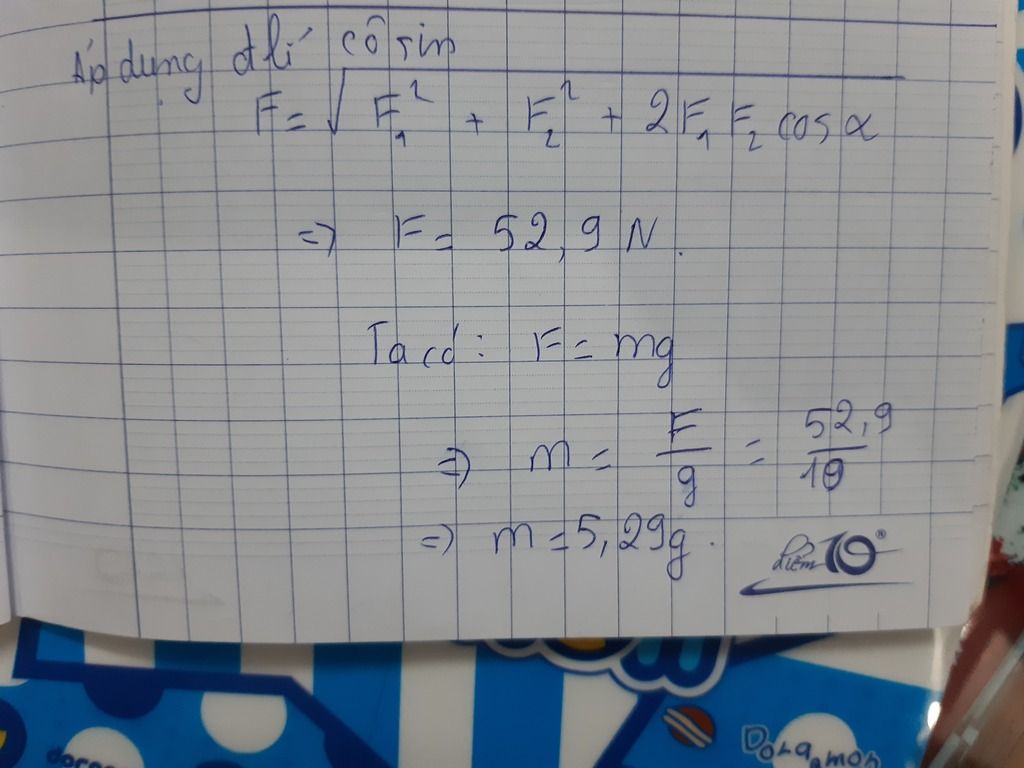 Áp dụng đlí cô sin
F = √F₁² + F₂² + 2F₁F₂ cos α
=> F = 52,9 N.
Ta có: F = mg
=> m = F/g = 52,9/10
=> m = 5,29g.
điểm 10
DORAEMON